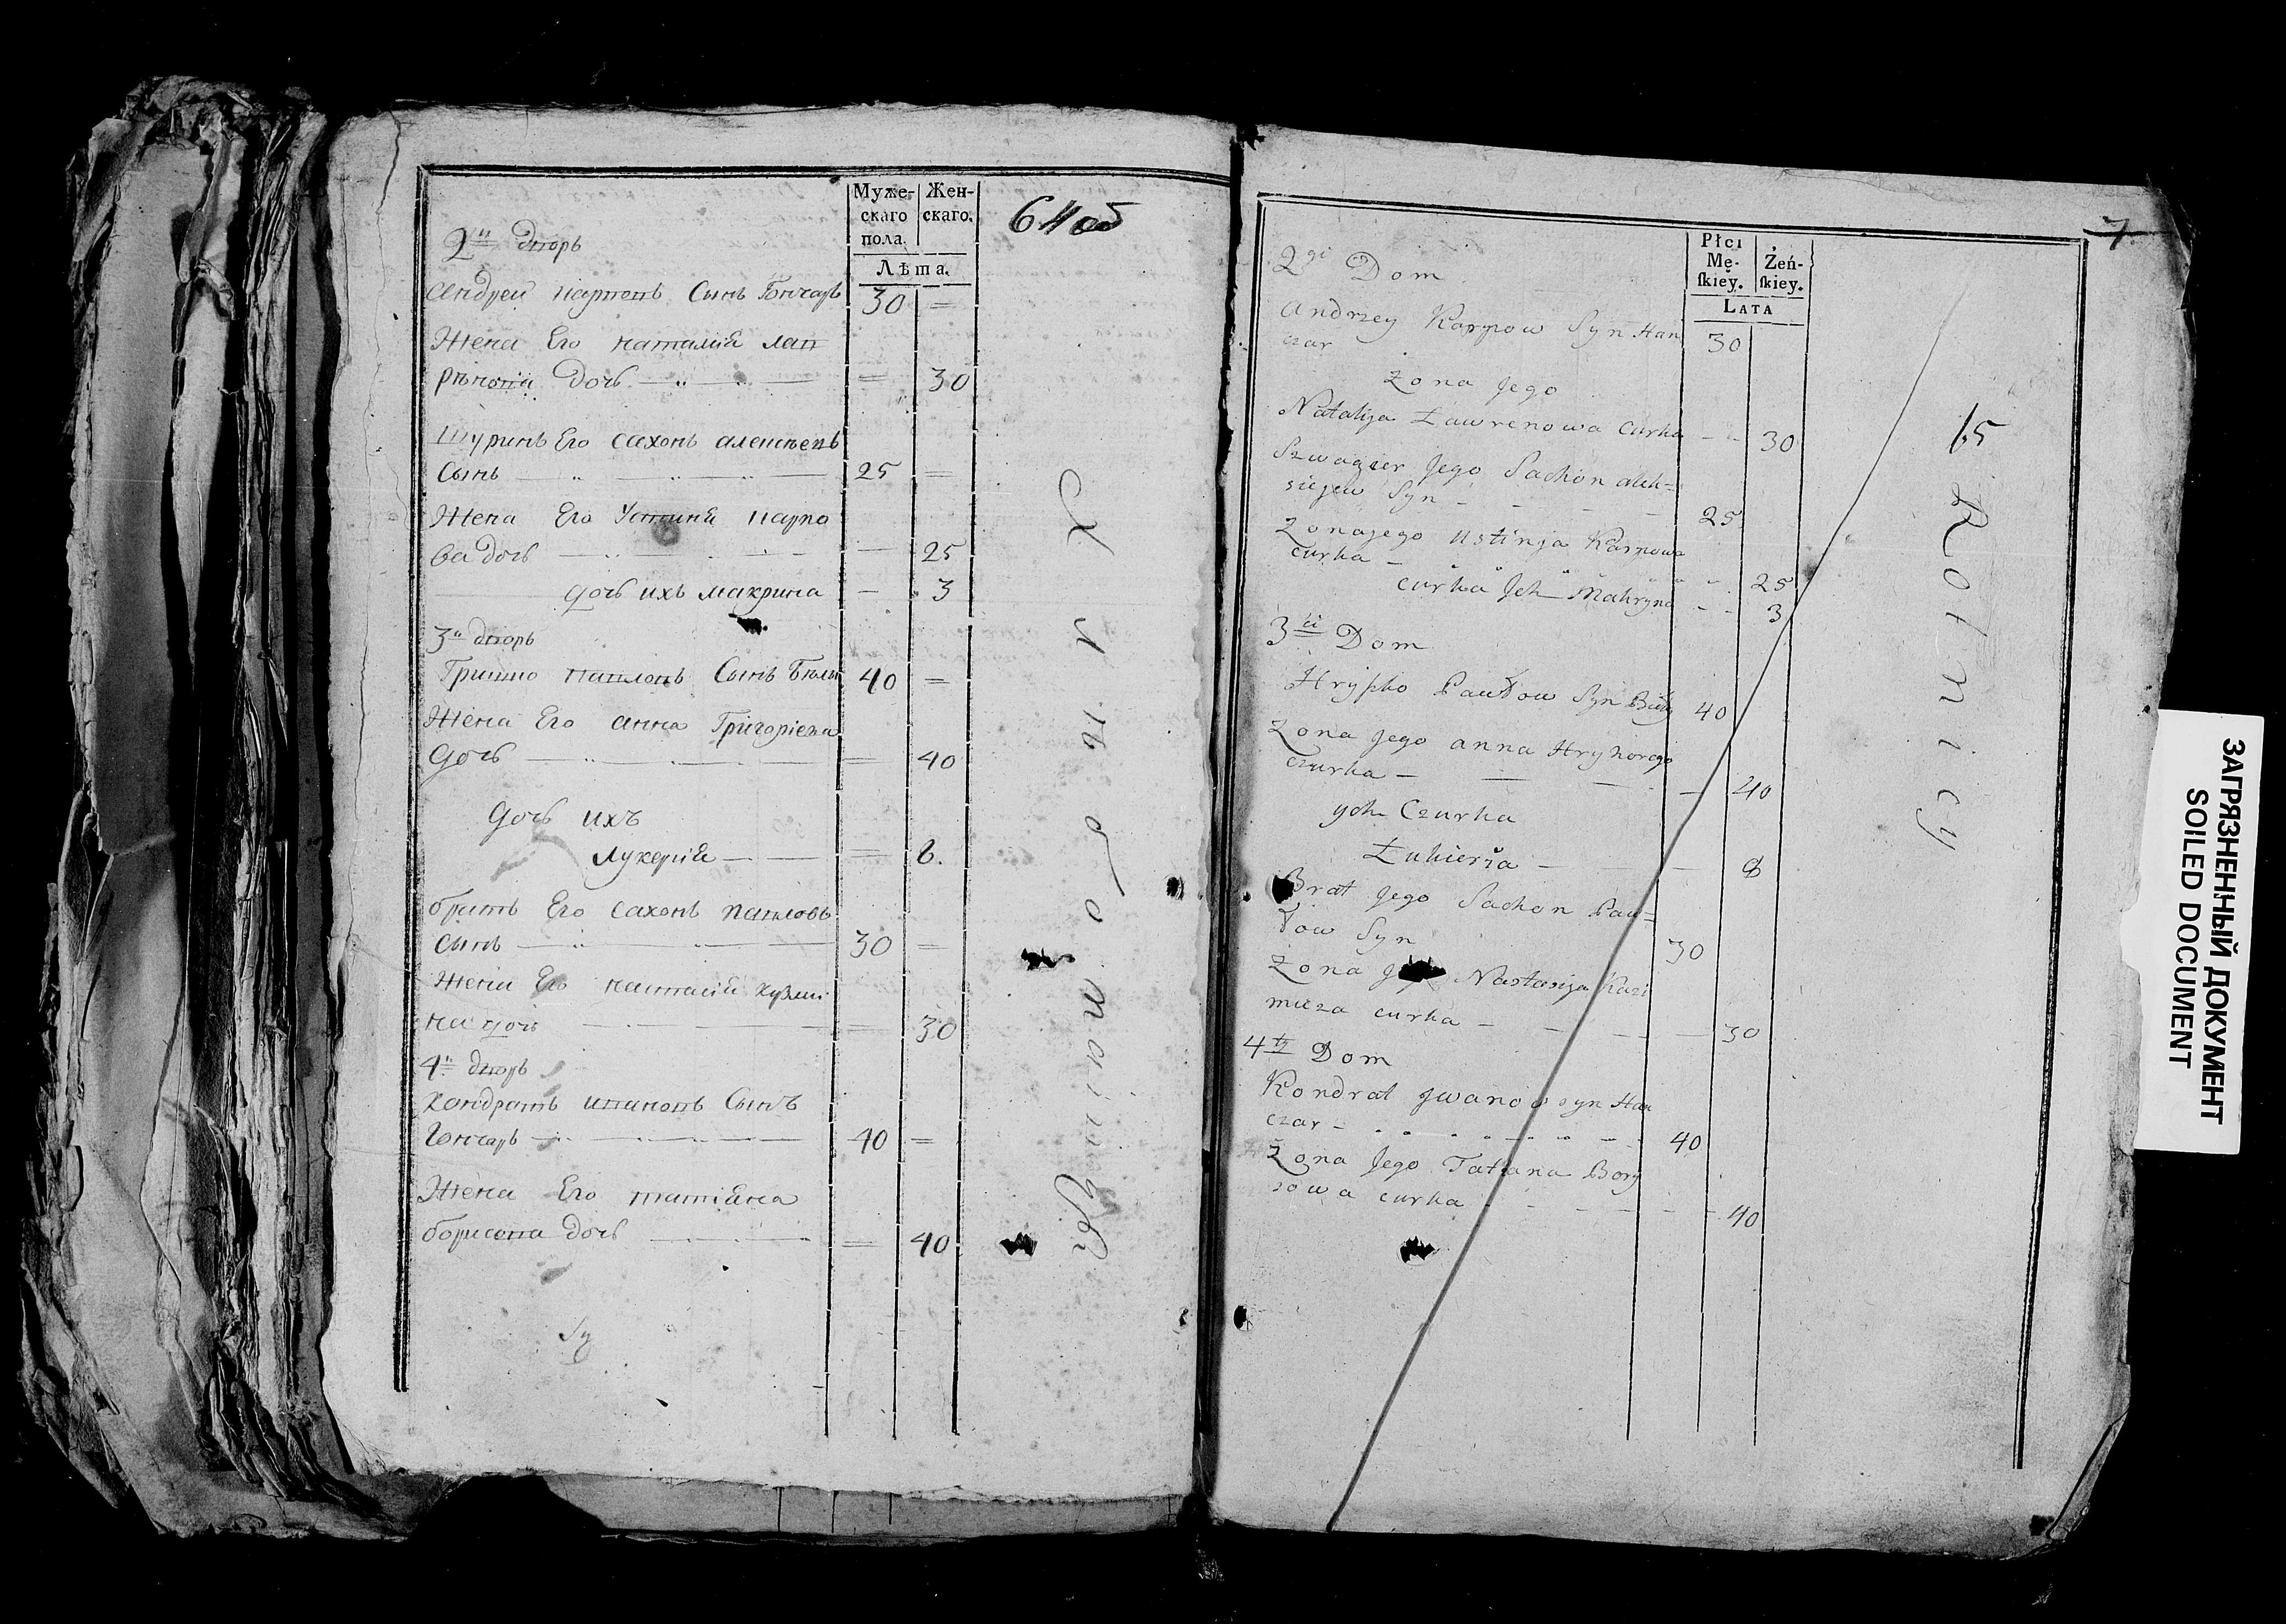 Муже-
скаго
пола.
Жен-
скаго.
Лѣта.
64об
2й дворъ
Андрей Карповъ Сынъ Гончаръ 30 =
Жена Его наталия лав
рѣнова дочь — 30
Шуринъ Его сахонъ алексѣевъ
Сынъ — 25 =
Жена Его Устиния карпо
ва дочь — 25
дочь ихъ макрина — 3
3й дворъ
Гришко павловъ Сынъ 40 =
Жена Его анна Григоріева
дочь — = 40
дочь ихъ
лукерия — = 8.
братъ Его сахонъ павловъ
сынъ — 30 =
Жена Его настасия кузми
на дочь — = 30
4й дворъ
кондратъ ивановъ Сынъ
Гончаръ — 40 =
Жена Его татияна
борисова дочь — = 40
7
Płci
Mę-
ſkiey.
Żeń-
ſkiey.
LATA
65
2gi Dom
Andrzey Karpow Syn Han
czar 30
Zona Jego
Natalija Ławrenowa Curka - - 30
Szwagier Jego Sachon alek=
siejew Syn - - - - 25
Zona jego Ustinja Karpowa
curka - 25
curka Jch Makryna - - 3
3ci Dom
Hryszko Pawłow Syn 40
Zona Jego anna Hryhorego
Czurka — 40
ych Czurka
Łukierza — 8
Brat Jego Sachon Paw=
łow Syn 30
Zona Nastasija Kazi
mieza curka - 30
4ty Dom
Kondrat Jwanow syn Han
czar - 40
Zona Jego Tatiana Bory
sowa curka - 40
Rolnicy
ЗАГРЯЗНЕННЫЙ ДОКУМЕНТ
SOILED DOCUMENT